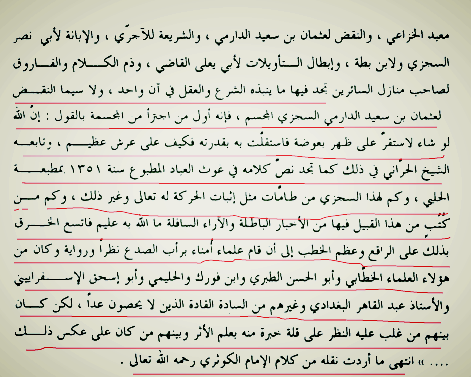 معبد الخزاعي ، والنقض لعثمان بن سعيد الدارمي ، والشريعة للآجرّي ، والإبانة لأبي نصر
السجزي ولابن بطة ، وإبطال التأويلات لأبي يعلى القاضي ، وذم الكلام والفاروق
لصاحب منازل السائرين تجد فيها ما ينبذه الشرع والعقل في آن واحد ، ولا سيما النقض
لعثمان بن سعيد الدارمي السجزي المجسم ، فإنه أول من اجترأ من المجسمة بالقول : إنّ الله
لو شاء لاستقرّ على ظهر بعوضة فاستقلّت به بقدرته فكيف على عرش عظيم ، وتابعه
الشيخ الحرّاني في ذلك كما تجد نصّ كلامه في غوث العباد المطبوع سنة ١٣٥١ بمطبعة
الحلبي ، وكم لهذا السجزي من طامّات مثل إثبات الحركة له تعالى وغير ذلك ، وكم من
كتب من هذا القبيل فيها من الأخبار الباطلة والآراء السافلة ما الله به عليم فاتسع الخرق
بذلك على الراقع وعظم الخطب إلى أن قام علماء أمناء برأب الصدع نظراً ورواية وكان من
هؤلاء العلماء الخطّابي وأبو الحسن الطبري وابن فورك والحليمي وأبو إسحق الإسفراييني
والأستاذ عبد القاهر البغدادي وغيرهم من السادة القادة الذين لا يحصون عداً ، لكن كان
بينهم من غلب عليه النظر على قلة خبرة منه بعلم الأثر وبينهم من كان على عكس ذلك
.... » انتهى ما أردت نقله من كلام الإمام الكوثري رحمه الله تعالى .